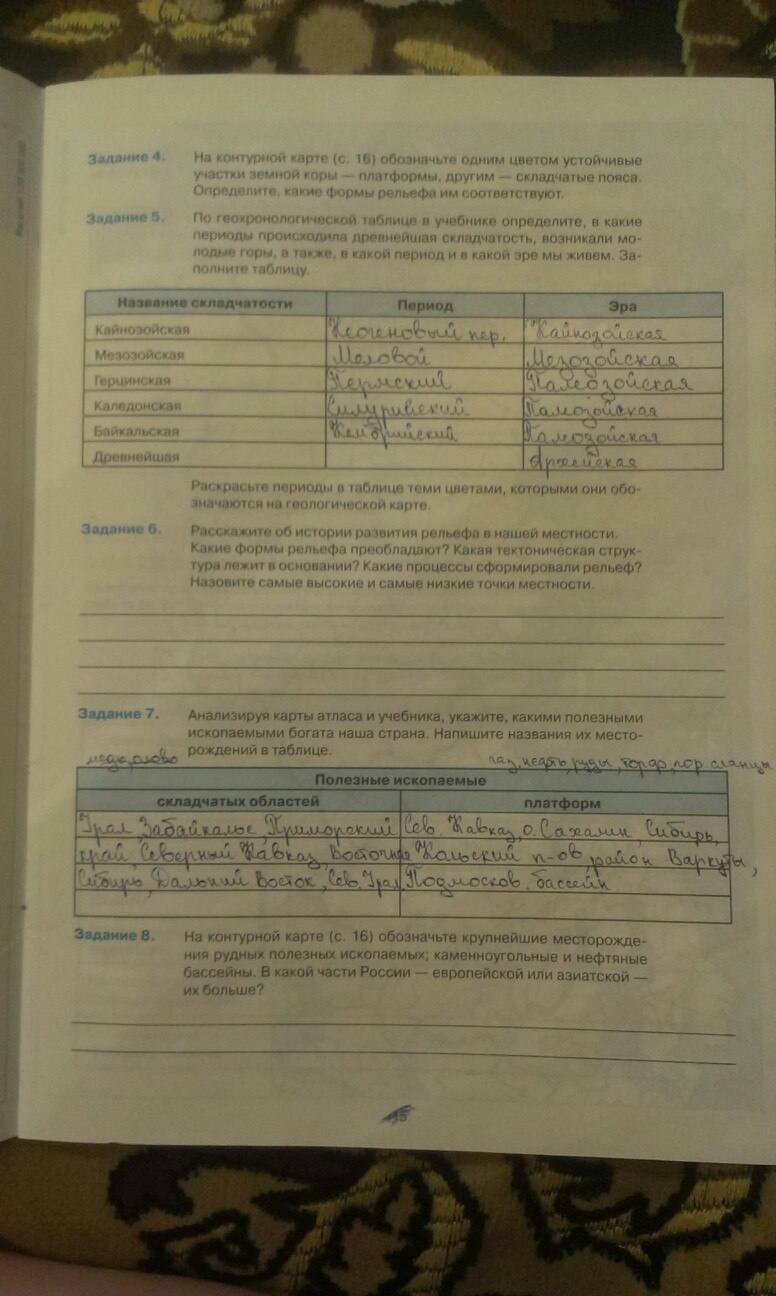 Задание 4. На контурной карте (с. 16) обозначьте одним цветом устойчивые
участки земной коры — платформы, другим — складчатые пояса.
Определите, какие формы рельефа им соответствуют.
Задание 5. По геохронологической таблице в учебнике определите, в какие
периоды происходила древнейшая складчатость, возникали мо-
лодые горы, а также, в какой период и в какой эре мы живем. За-
полните таблицу.
Название складчатости Период Эра
Кайнозойская Неогеновый пер. Кайнозойская
Мезозойская Меловой Мезозойская
Герцинская Пермский Палеозойская
Каледонская Силурийский Палиозойская
Байкальская Кембрийский Палиозойская
Древнейшая Архейская
Раскрасьте периоды в таблице теми цветами, которыми они обо-
значаются на геологической карте.
Задание 6. Расскажите об истории развития рельефа в нашей местности.
Какие формы рельефа преобладают? Какая тектоническая струк-
тура лежит в основании? Какие процессы сформировали рельеф?
Назовите самые высокие и самые низкие точки местности.
Задание 7. Анализируя карты атласа и учебника, укажите, какими полезными
ископаемыми богата наша страна. Напишите названия их место-
рождений в таблице.
медь, олово газ, нефть, руды, торф, гор. сланцы
Полезные ископаемые
складчатых областей платформ
Урал, Забайкалье, Приморский Сев. Кавказ, о. Сахалин, Сибирь,
край, Северный Кавказ, Восточная Кольский п-ов, район Воркуты,
Сибирь, Дальний Восток, Сев. Урал Подмосков. бассейн
Задание 8. На контурной карте (с. 16) обозначьте крупнейшие месторожде-
ния рудных полезных ископаемых; каменноугольные и нефтяные
бассейны. В какой части России — европейской или азиатской —
их больше?
15